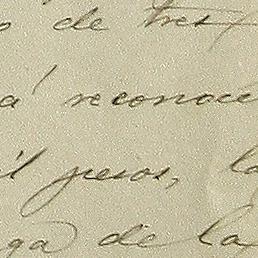 o de tres
á reconoce
il pesos, la
ga de la